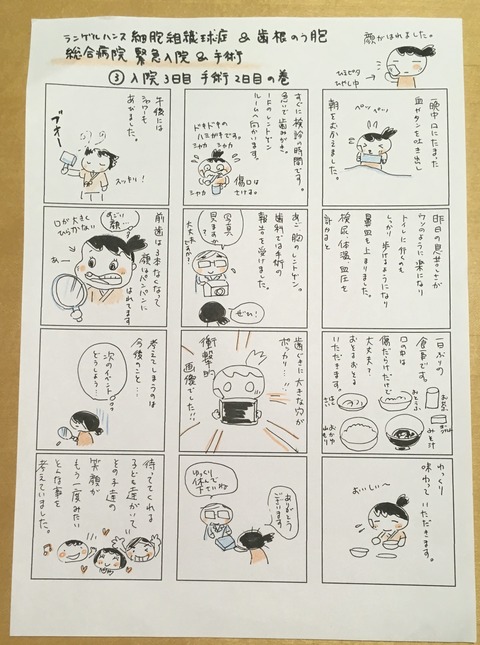 ランゲルハンス細胞組織球症 & 歯根のう胞
総合病院 緊急入院&手術
③入院3日目 手術2日目の巻
顔がはれました。
ひえピタ
ひやし中
晩中口にたまった
血やタンを吐き出し
ペッ ペッ
朝をむかえました。
昨日の息苦しさが
ウソのように楽になり
トイレに行くのも
しっかり歩けるようになり
鼻血も止まりました。
検尿、体温、血圧を
計かると
一日ぶりの
食事です。
口の中は
傷だらけだけど
大丈夫?
おそるおそる
いただきます。
お茶
おとうふ
みそ汁
おかゆ
大もり
ゆっくり
味わっていただきます。
おいしい〜
すぐに検診の時間です。
急いで歯みがき。
1Fのレントゲン
ルームへ向かいます。
ドキドキの
ハミガキです。
シャカ シャカ
シャカ
傷口は
さける。
あご、胸のレントゲン。
歯科では手術の
報告を受けました。
写真
見ますか?
大丈夫ですか?
ぜひ!
歯ぐきに大きな穴が
ポッカリ…!!
衝撃的
画像でした!!
ゆっくり
休んで
下さいね
ありがとう
ございます。
午後には
シャワーも
あびました。
ブオー
スッキリ!
前歯は3本なくなって
顔はパンパンに
はれてます
すごい
顔…
口が大きく
ひらかない
あー
考えてしまうのは
今後のこと…
次のイベント
どうしよう…
待っててくれる
子ども達がいて
その子達の
笑顔が
もう一度みたい
そんな事を
考えていました。